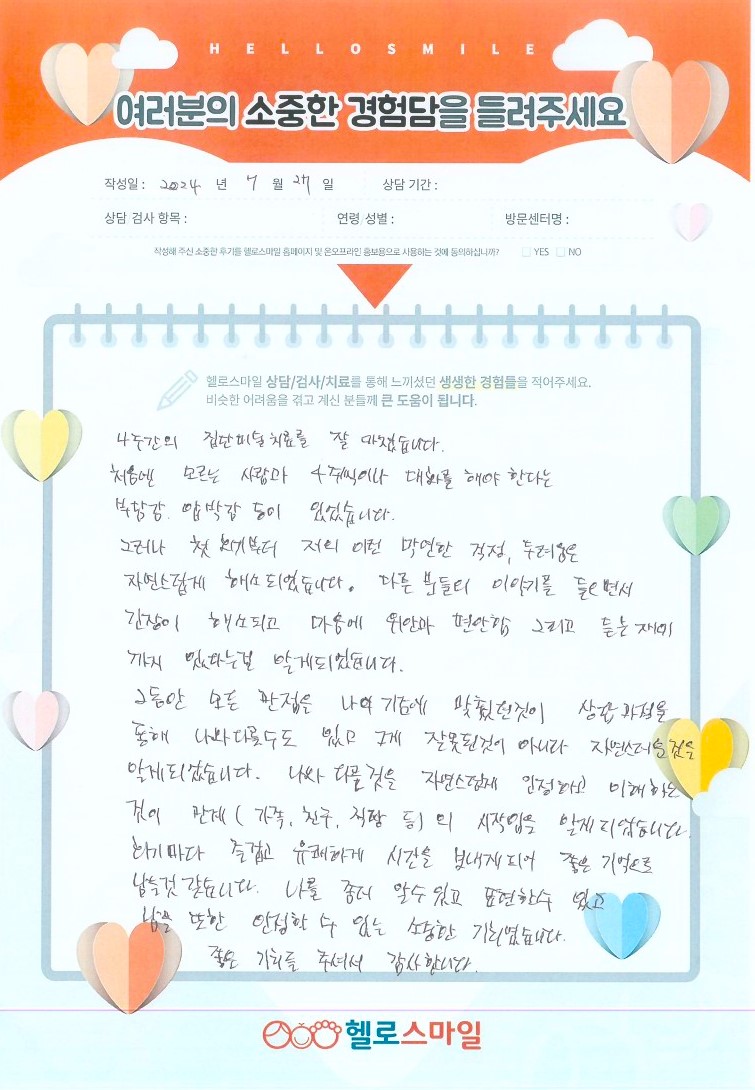 HELLOSMILE
여러분의 소중한 경험담을 들려주세요
작성일 : 2024 년 7 월 27 일 상담 기간 :
상담 검사 항목 : 연령/성별 : 방문센터명 :
작성해 주신 소중한 후기를 헬로스마일 홈페이지 및 온오프라인 홍보용으로 사용하는 것에 동의하십니까? YES NO
헬로스마일 상담/검사/치료를 통해 느끼셨던 생생한 경험들을 적어주세요.
비슷한 어려움을 겪고 계신 분들께 큰 도움이 됩니다.
4주간의 집단미술치료를 잘 마쳤습니다.
처음에 모르는 사람과 4주씩이나 대화를 해야 한다는
부담감, 압박감 등이 있었습니다.
그러나 첫 회기부터 저의 이런 막연한 걱정, 두려움은
자연스럽게 해소되었습니다. 다른 분들의 이야기를 들으면서
긴장이 해소되고 마음에 위안과 편안함 그리고 듣는 재미
까지 있다는걸 알게되었습니다.
그동안 모든 관점은 나의 기준에 맞췄던것이 상담 과정을
통해 나와 다를수도 있고 그게 잘못된것이 아니다 자연스러운것을
알게되었습니다. 나와 다른것을 자연스럽게 인정하고 이해하는
것이 관계 ( 가족, 친구, 직장 등) 의 시작임을 알게 되었습니다.
회기마다 즐겁고 유쾌하게 시간을 보내게되어 좋은 기억으로
남을것 같습니다. 나를 좀더 알수있고 표현할수 있고
남을 또한 인정할 수 있는 소중한 기회였습니다.
좋은 기회를 주셔서 감사합니다.
헬로스마일